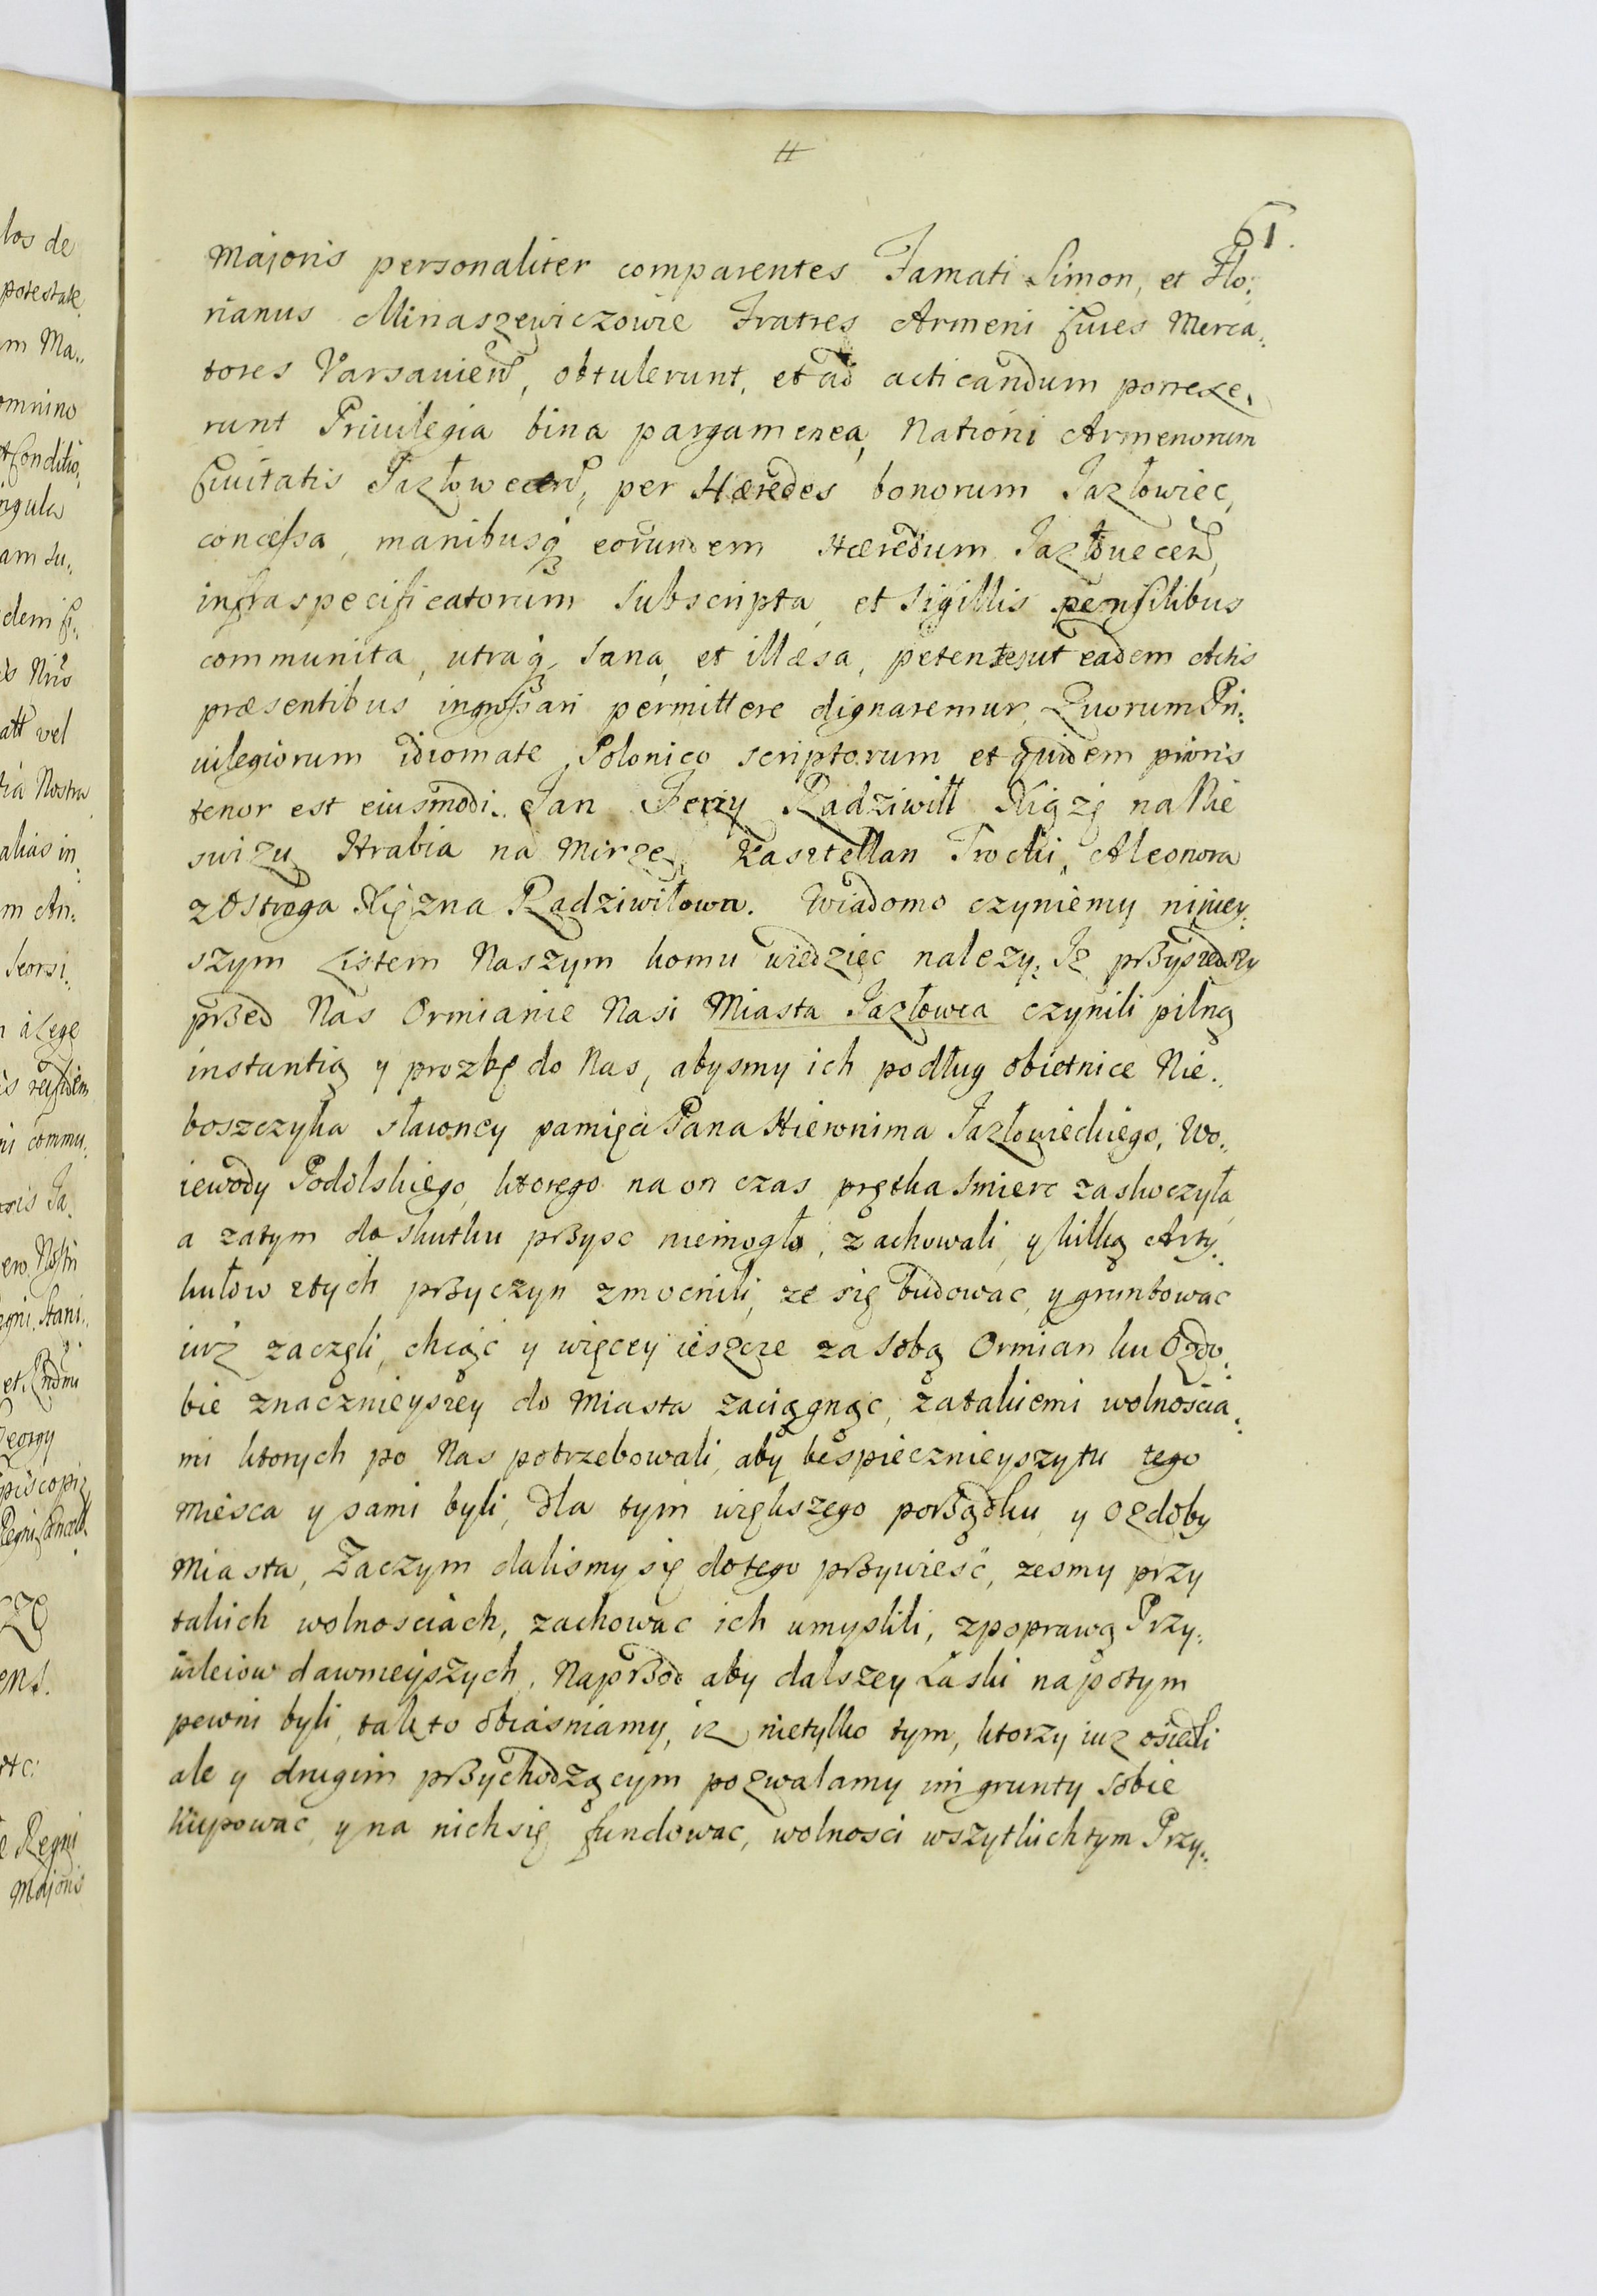 61.
Majoris personaliter comparentes Famati Simon, et Flo:
rianus Minaszewiczowie Fratres Armeni Ciues Merca,
tores Varsauien, obtulerunt, et ad acticandum porrexe,
runt Priuilegia bina pargamenea, Nationi Armenorum
Ciuitatis Jazłowecen, per Hæredes bonorum Jazłowiec,
concessa, manibusq eorundem Hæredum Jazłouecen,
infraspecificatorum subscripta, et sigillis pensilibus
communita, utraq, sana, et illæsa, petentes ut eadem Actis
præsentibus ingrossari permittere dignaremur, Quorum Pri:
uilegiorum idiomate Polonico scriptorum et quidem prioris
tenor est eiusmodi. Jan Jerzy Radziwiłł Xiążę na Nie
swizu Hrabia na Mirze, Kasztellan Trocki, Aleonora
z Ostroga Xiężna Radziwiłowa. Wiadomo czyniemy niniey:
szym Listem Naszym komu wiedziec nalezy, Iz przyszedszy
przed Nas Ormianie Nasi Miasta Jazłowca czynili pilną
instantią y prozbę do Nas, abysmy ich podług obietnice Nie.
boszczyka sławney pamięci Pana Hieronima Jazłowieckiego, Wo.
iewody Podolskiego, ktorego na on czas prętka smierc zaskoczyła,
a zatym do skutku przysc niemogło, zachowali, y kilką Arty.
kułow ztych przyczyn zmocnili, ze się budowac, y gruntowac
iuz zaczęli, chcąc y więcey ieszcze za sobą Ormian ku Ozdo:
bie znacznieyszey do Miasta zaciągnąc, zatakiemi wolnoscia,
mi ktorych po Nas potrzebowali, aby bespiecznieyszy tu tego
miesca y sami byli, dla tym większego porządku, y ozdoby
Miasta, Zaczym dalismy się dotego przywiesc, zesmy przy
takich wolnosciach, zachowac ich umyslili, zpoprawą Przy:
wileiow dawnieyszych, Naprzod aby dalszey Łaski napotym
pewni byli, tak to obiasniamy, iz nietylko tym, ktorzy iuz osiedli
ale y drugim przychodzącym pozwalamy im grunty sobie
kupowac, y na nich się fundowac, wolnosci wszytkich tym Przy: